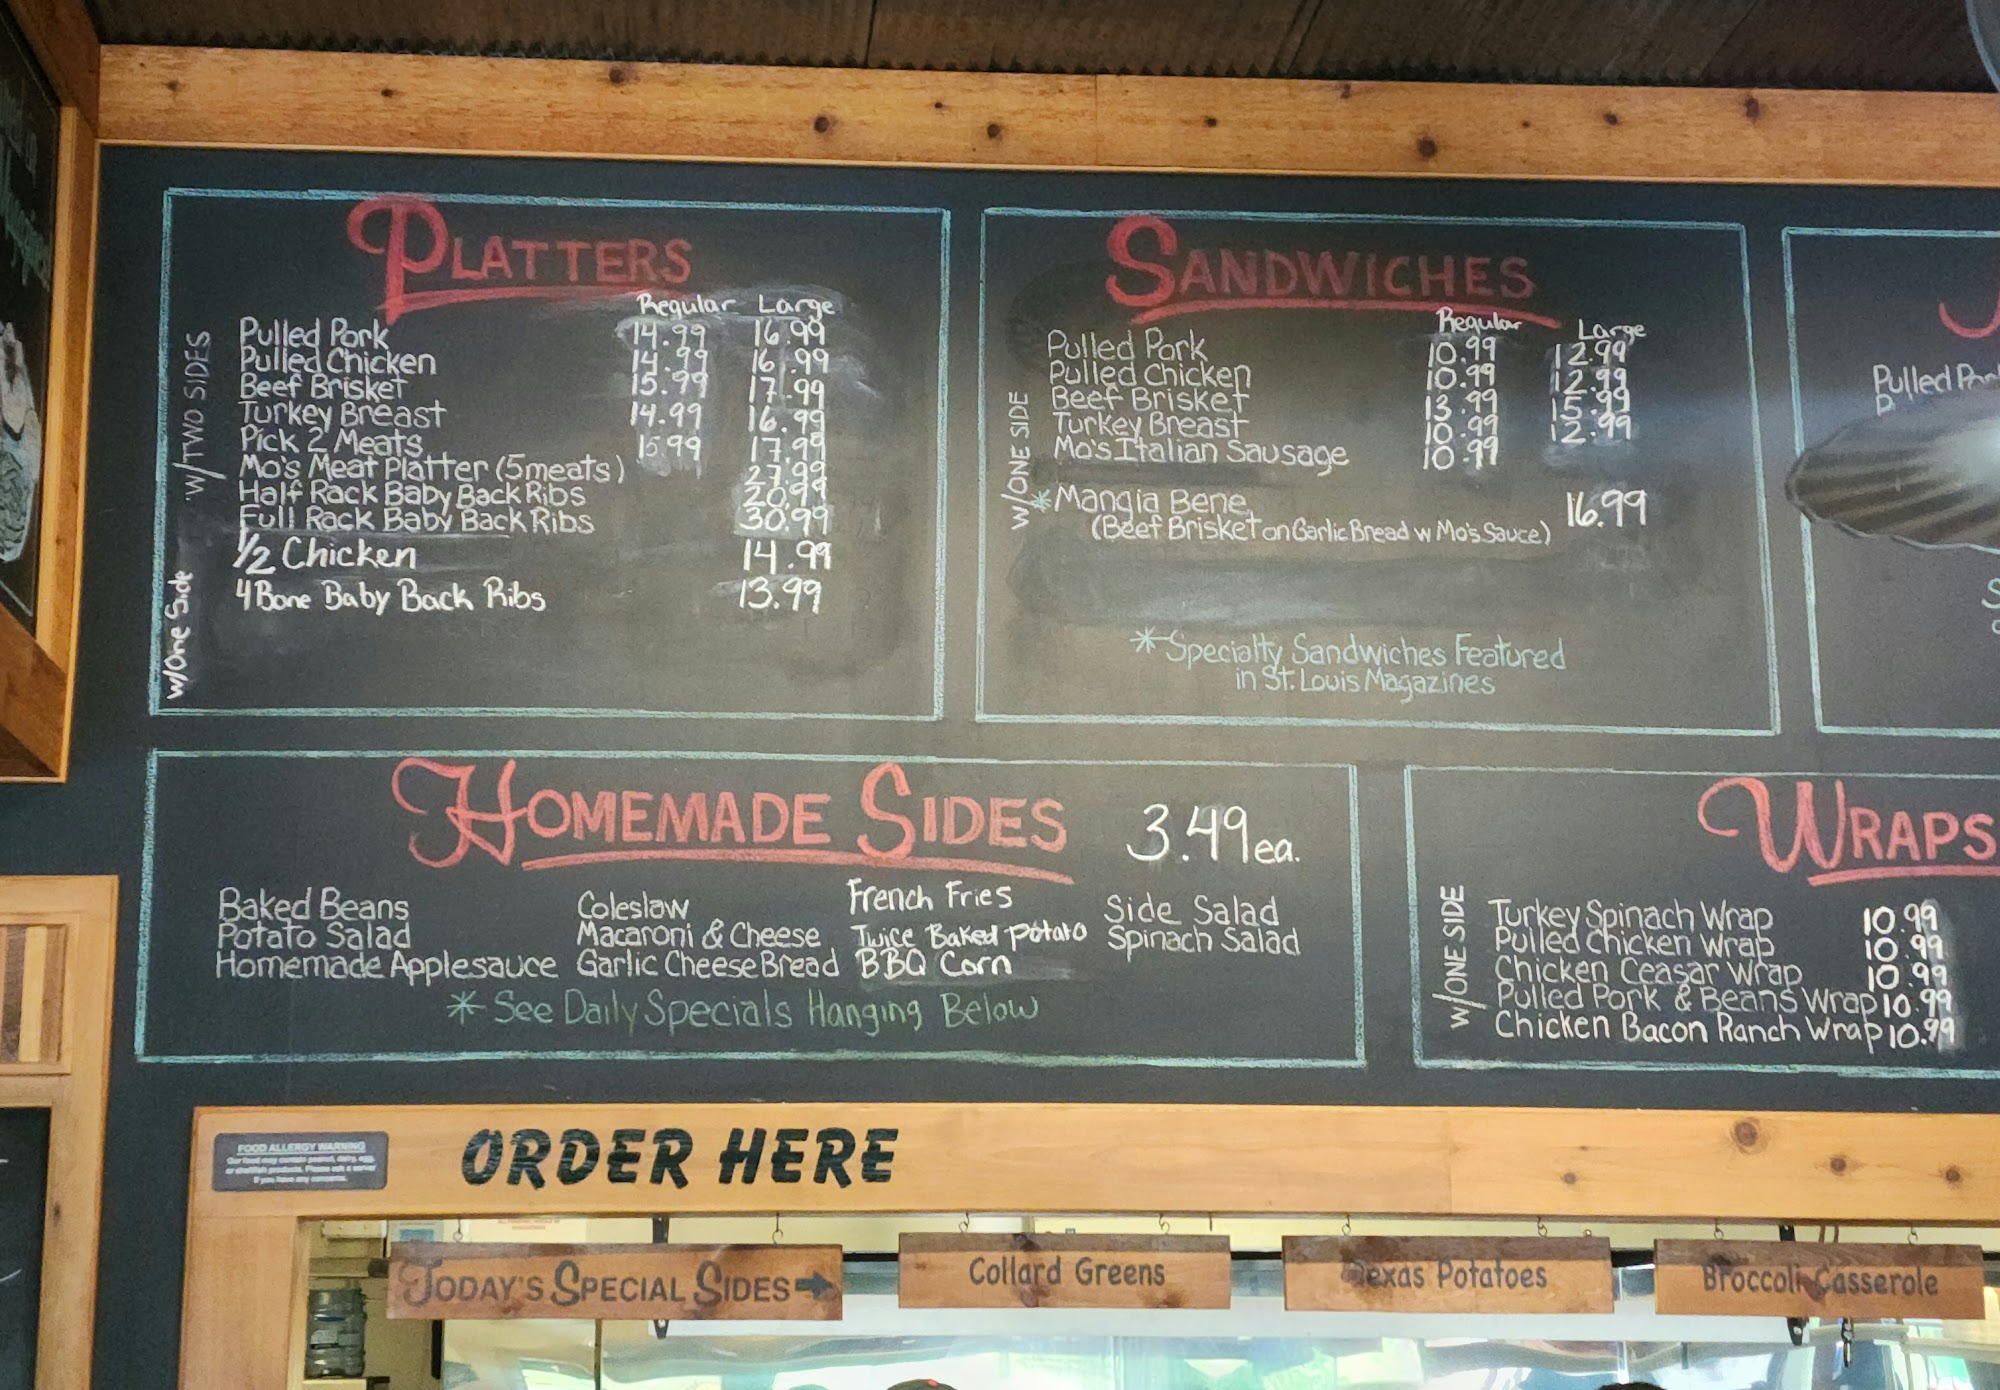 PLATTERS
Regular Large
W/TWO SIDES
Pulled Pork 14.99 16.99
Pulled Chicken 14.99 16.99
Beef Brisket 15.99 17.99
Turkey Breast 14.99 16.99
Pick 2 Meats 15.99 17.99
Mo's Meat Platter (5meats) 27.99
Half Rack Baby Back Ribs 20.99
Full Rack Baby Back Ribs 30.99
w/One Side
1/2 Chicken 14.99
4 Bone Baby Back Ribs 13.99
SANDWICHES
Regular Large
W/ONE SIDE
Pulled Pork 10.99 12.99
Pulled Chicken 10.99 12.99
Beef Brisket 13.99 15.99
Turkey Breast 10.99 12.99
Mo's Italian Sausage 10.99
*Mangia Bene 16.99
(Beef Brisket on Garlic Bread w Mo's Sauce)
*Specialty Sandwiches Featured
in St. Louis Magazines
Pulled
HOMEMADE SIDES 3.49 ea.
Baked Beans Coleslaw French Fries Side Salad
Potato Salad Macaroni & Cheese Twice Baked Potato Spinach Salad
Homemade Applesauce Garlic Cheese Bread BBQ Corn
* See Daily Specials Hanging Below
WRAPS
W/ONE SIDE
Turkey Spinach Wrap 10.99
Pulled Chicken Wrap 10.99
Chicken Ceasar Wrap 10.99
Pulled Pork & Beans Wrap 10.99
Chicken Bacon Ranch Wrap 10.99
FOOD ALLERGY WARNING
Our food may contain peanut, dairy, egg,
or shellfish products. Please ask a server
if you have any concerns.
ORDER HERE
TODAY'S SPECIAL SIDES
Collard Greens
Texas Potatoes
Broccoli Casserole